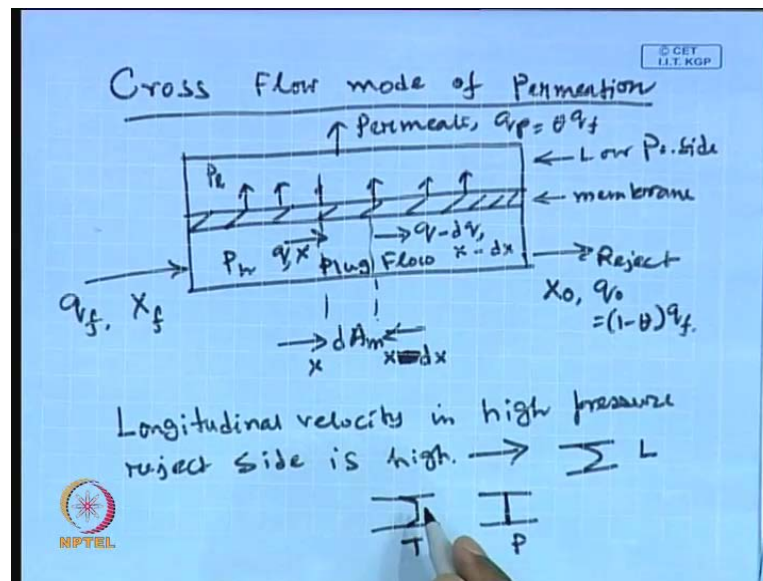 © CET
I.I.T. KGP
Cross Flow mode of Permeation
↑ Permeate, qp = θ qf
Pl
← Low Pr. side
← membrane
Ph q, x Plug Flow → q - dq, x - dx
→ Reject
qf, xf
x0, q0
= (1-θ) qf.
→ dAm ←
x x - dx
Longitudinal velocity in high pressure
reject side is high. → L
T P
NPTEL